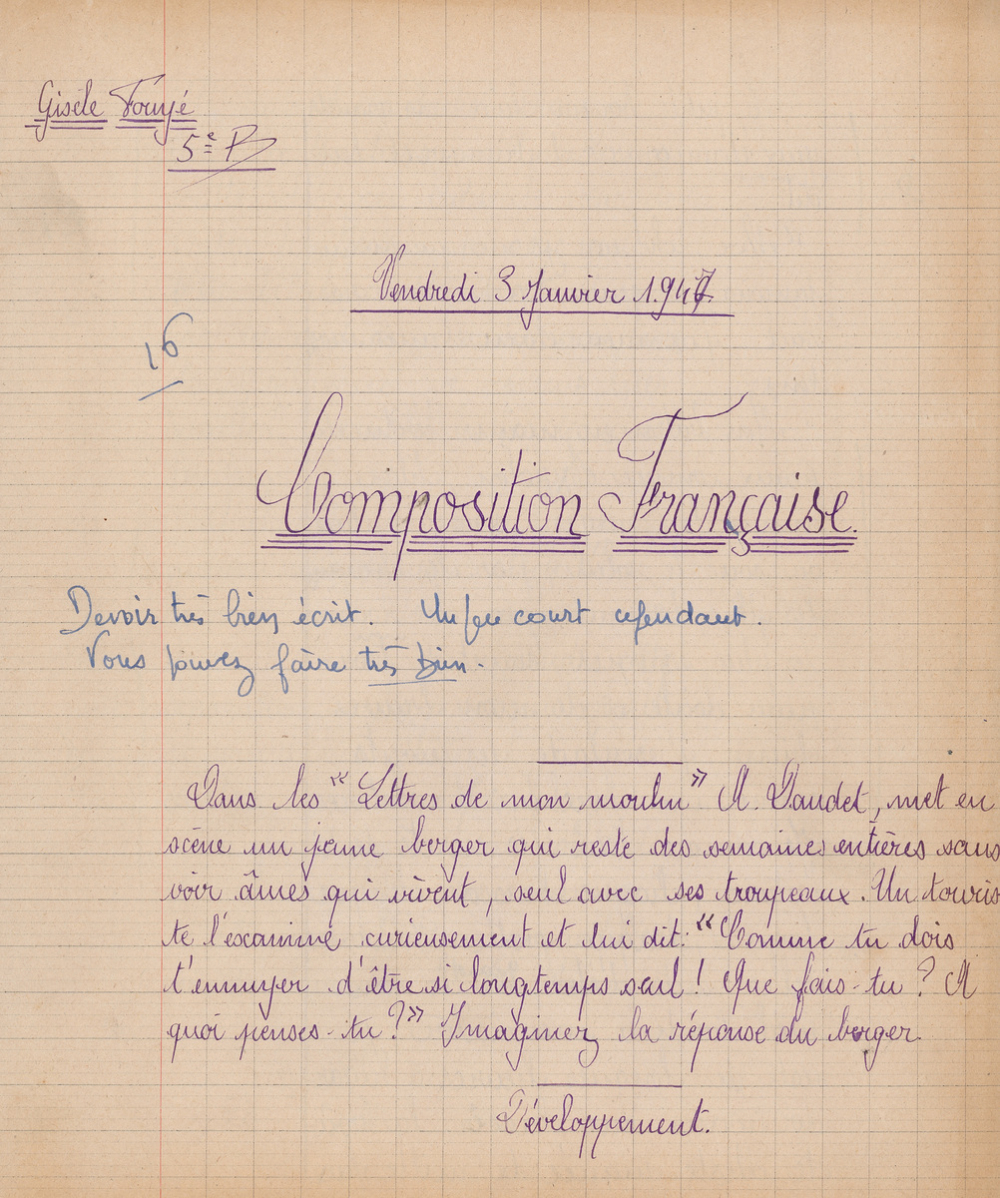 Gisèle Fouyé
5e B
Vendredi 3 Janvier 1.947
16
Composition Française.
Devoir très bien écrit. Un peu court cependant.
Vous pouvez faire très bien.
Dans les "Lettres de mon moulin" A. Daudet, met en
scène un jeune berger qui reste des semaines entières sans
voir âmes qui vivent, seul avec ses troupeaux. Un touris
te l'examine curieusement et lui dit: "Comme tu dois
t'ennuyer d'être si longtemps seul! Que fais-tu? A
quoi penses-tu?" Imaginez la réponse du berger.
Développement.